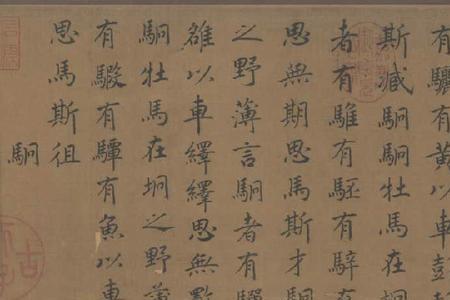 有驪有黃以車彭
斯臧駉駉牡馬在坰
者有騅有駓有騂有
思無期思馬斯才駉
之野薄言駉者有驒
雒以車繹繹思無斁
駉牡馬在坰之野薄
有騢有驔有魚以車
思馬斯徂
駉